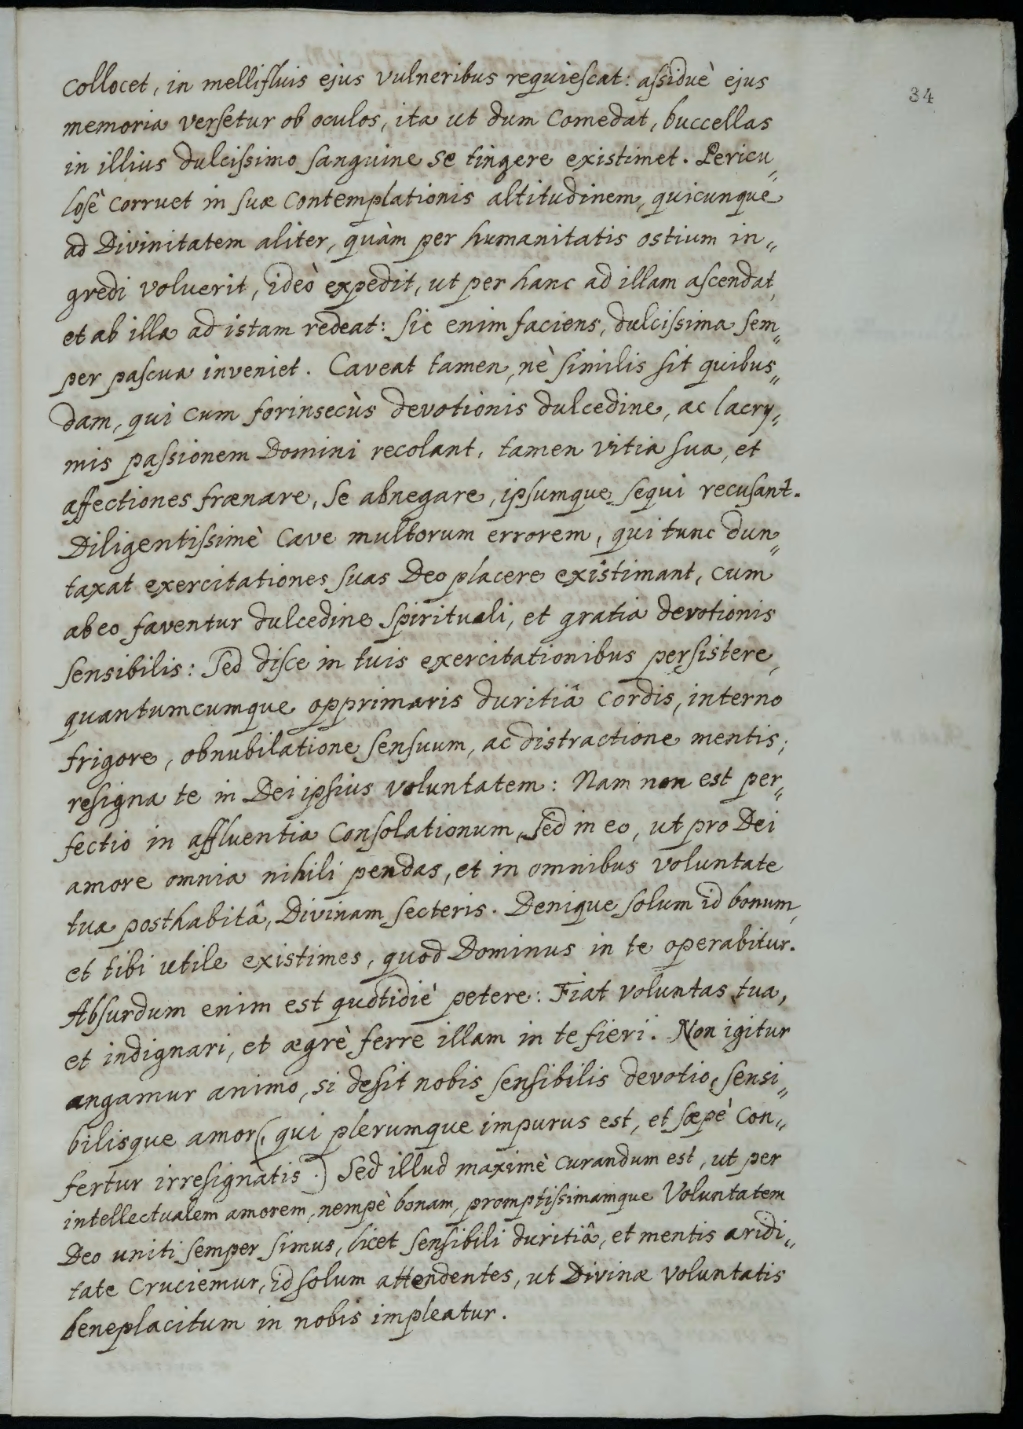 34
collocet, in mellifluis ejus vulneribus requiescat: assiduè ejus
memoria versetur ob oculos, ita ut dum comedat, buccellas
in illius dulcissimo sanguine se tingere existimet. Pericu„
losè corruet in suæ contemplationis altitudinem, quicunque
ad Divinitatem aliter, quàm per humanitatis ostium in„
gredi voluerit, ideò expedit, ut per hanc ad illam ascendat,
et ab illa ad istam redeat: sic enim faciens, dulcissima sem„
per pascua inveniet. Caveat tamen, nè similis sit quibus„
dam, qui cum forinsecùs devotionis dulcedine, ac lacry„
mis passionem Domini recolant, tamen vitia sua, et
affectiones frænare, se abnegare, ipsumque sequi recusant.
Diligentissimè cave multorum errorem, qui tunc dun„
taxat exercitationes suas Deo placere existimant, cum
ab eo faventur dulcedine spirituali, et gratia devotionis
sensibilis: Sed disce in tuis exercitationibus persistere,
quantumcumque opprimaris duritiâ cordis, interno
frigore, obnubilatione sensuum, ac distractione mentis;
resigna te in Dei ipsius voluntatem: Nam non est per„
fectio in affluentia consolationum, sed in eo, ut pro Dei
amore omnia nihili pendas, et in omnibus voluntate
tua posthabitâ, Divinam secteris. Denique solum id bonum,
et tibi utile existimes, quod Dominus in te operabitur.
Absurdum enim est quotidiè petere: Fiat voluntas tua,
et indignari, et ægrè ferre illam in te fieri. Non igitur
angamur animo, si desit nobis sensibilis devotio, sensi„
bilisque amor (qui plerumque impurus est, et sæpè con„
fertur irresignatis.) Sed illud maximè curandum est, ut per
intellectualem amorem, nempè bonam, promptissimamque voluntatem
Deo uniti semper simus, licet sensibili duritiâ, et mentis aridi„
tate cruciemur, id solum attendentes, ut Divinæ voluntatis
beneplacitum in nobis impleatur.